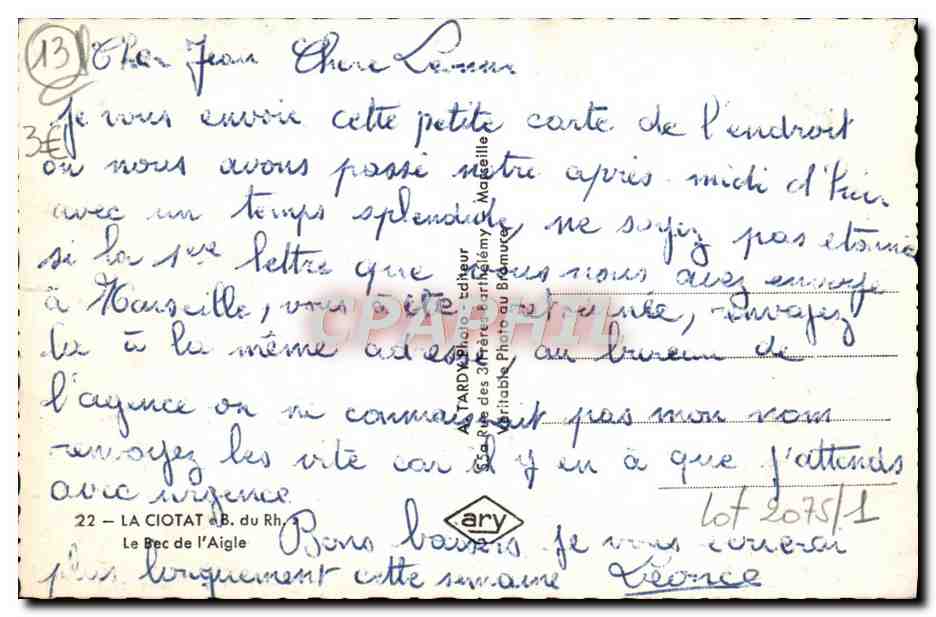 13
Cher Jean Chere
Je vous envoie cette petite carte de l'endroit
3€
ou nous avons passé notre après midi d'hier
avec un temps splendide, ne soyez pas etonné
si la 1ere lettre que vous nous avez envoye
à Marseille, vous à été retournée, renvoyez
la à la même adresse au bureau de
l'agence on ne connaissait pas mon nom
renvoyez les vite car il y en à que j'attends
avec urgence
Bons baisers je vous écrierai
plus longuement cette semaine Léonce
22 — LA CIOTAT B. du Rh.
Le Bec de l'Aigle
ary
Lot 2075/1
A. TARDY Photo-Editeur
55a Rue des 3 Frères Barthélémy Marseille
Véritable Photo au Bromure
CPAPHIL